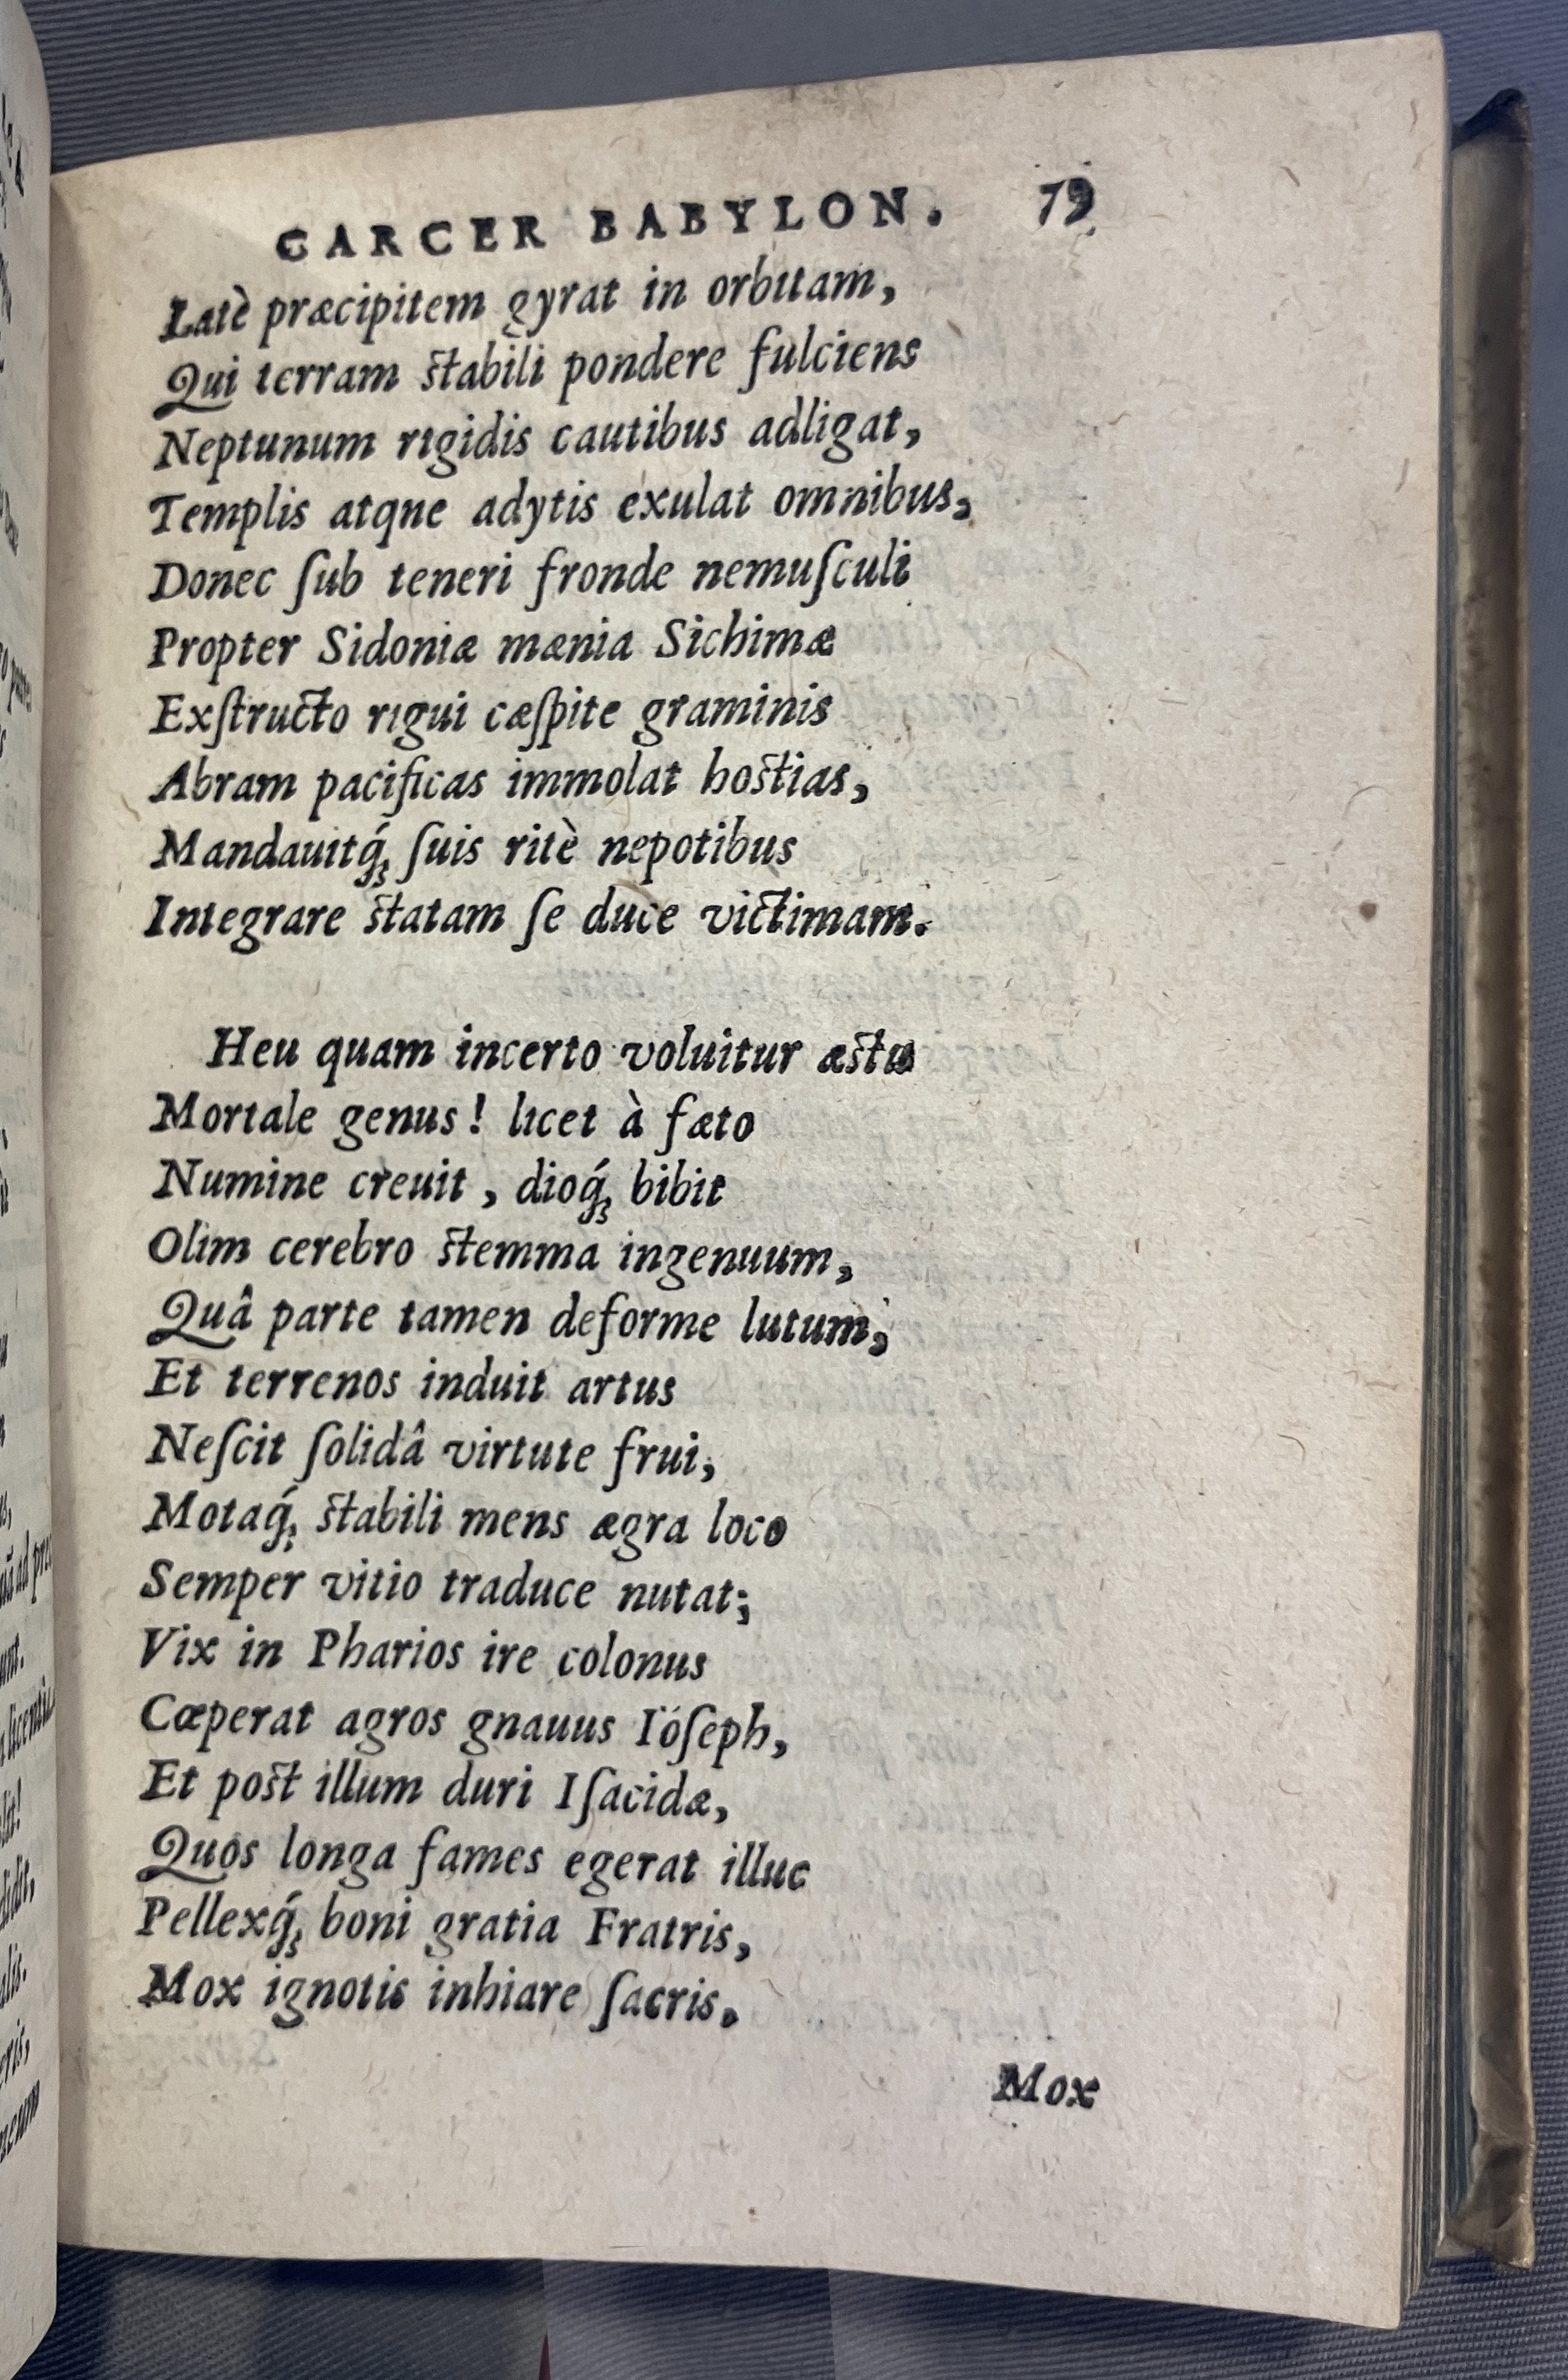 CARCER BABYLON. 79
Latè præcipitem gyrat in orbitam,
Qui terram ſtabili pondere fulciens
Neptunum rigidis cautibus adligat,
Templis atqne adytis exulat omnibus,
Donec ſub teneri fronde nemuſculi
Propter Sidoniæ mœnia Sichimæ
Exſtructo rigui cæſpite graminis
Abram pacificas immolat hoſtias,
Mandauitq́; ſuis ritè nepotibus
Integrare ſtatam ſe duce victimam.
Heu quam incerto voluitur æſtu
Mortale genus! licet à fœto
Numine creuit, dioq́; bibit
Olim cerebro ſtemma ingenuum,
Quâ parte tamen deforme lutum,
Et terrenos induit artus
Neſcit ſolidâ virtute frui,
Motaq́; ſtabili mens ægra loco
Semper vitio traduce nutat;
Vix in Pharios ire colonus
Cœperat agros gnauus Ióſeph,
Et poſt illum duri Iſacidæ,
Quos longa fames egerat illuc
Pellexq́; boni gratia Fratris,
Mox ignotis inhiare ſacris.
Mox